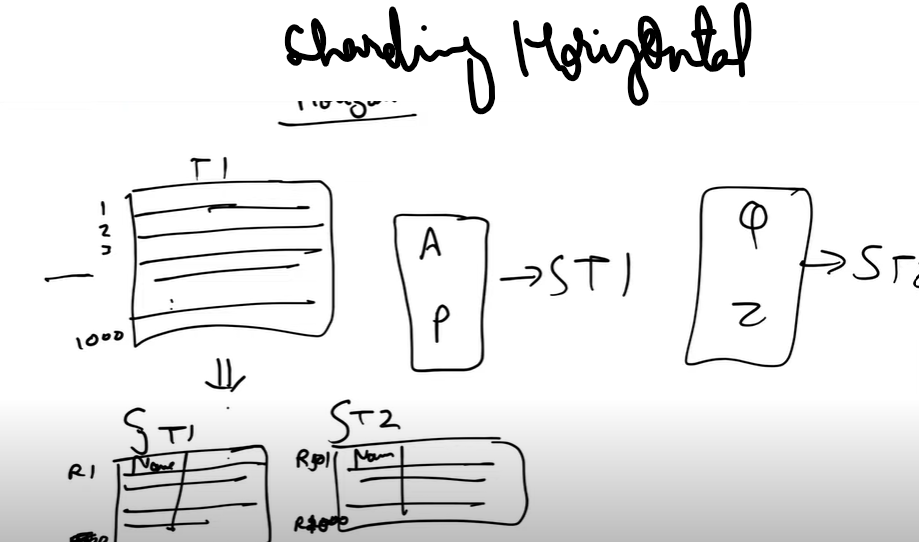 Sharding Horizontal
T1
1
2
3
1000
A
P
→ST1
Q
Z
→ST2
ST1
R1
Name
ST2
R501
Nam
R1000